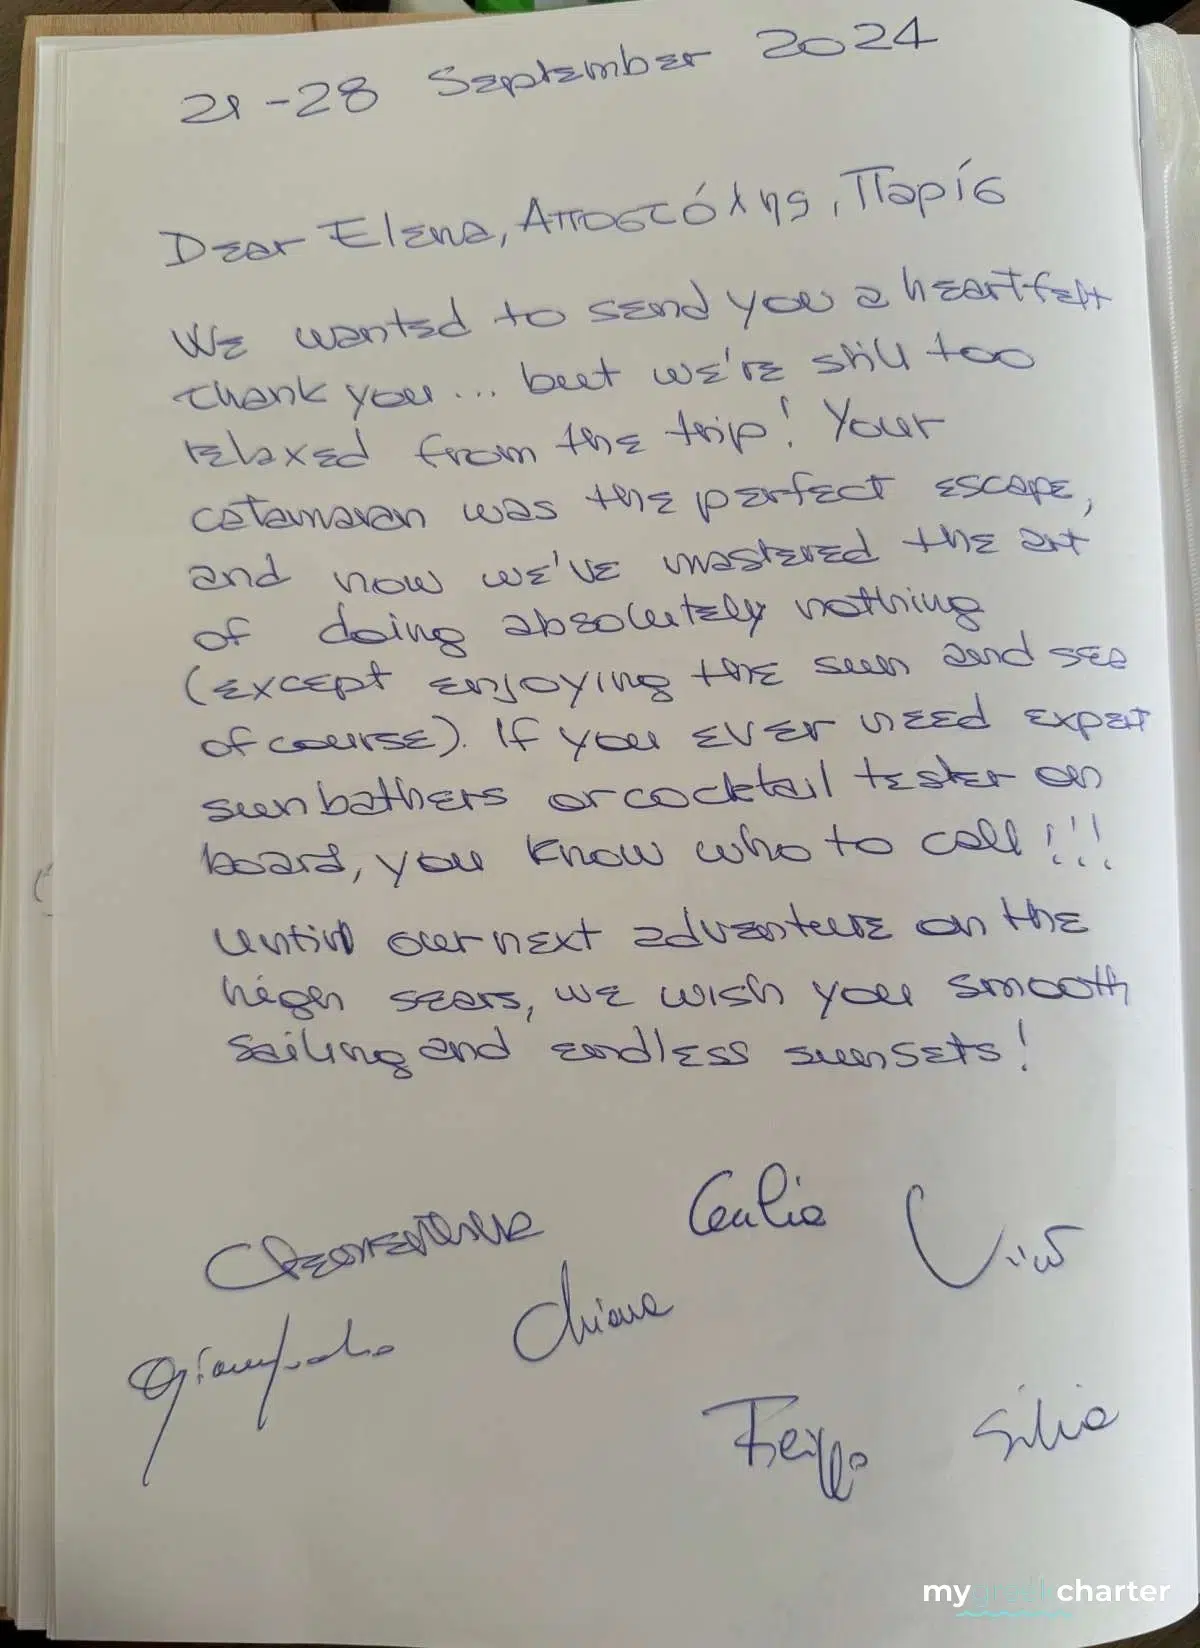 21-28 September 2024
Dear Elena, Αποστόλης, Παρίς
We wanted to send you a heartfelt
thank you... but we're still too
relaxed from the trip! Your
catamaran was the perfect escape,
and now we've mastered the art
of doing absolutely nothing
(except enjoying the sun and sea
of course). If you ever need expert
sunbathers or cocktail tester on
board, you know who to call!!!
Until our next adventure on the
high seas, we wish you smooth
sailing and endless sunsets!
Giulia
Chiara
Silvia
mygreekcharter